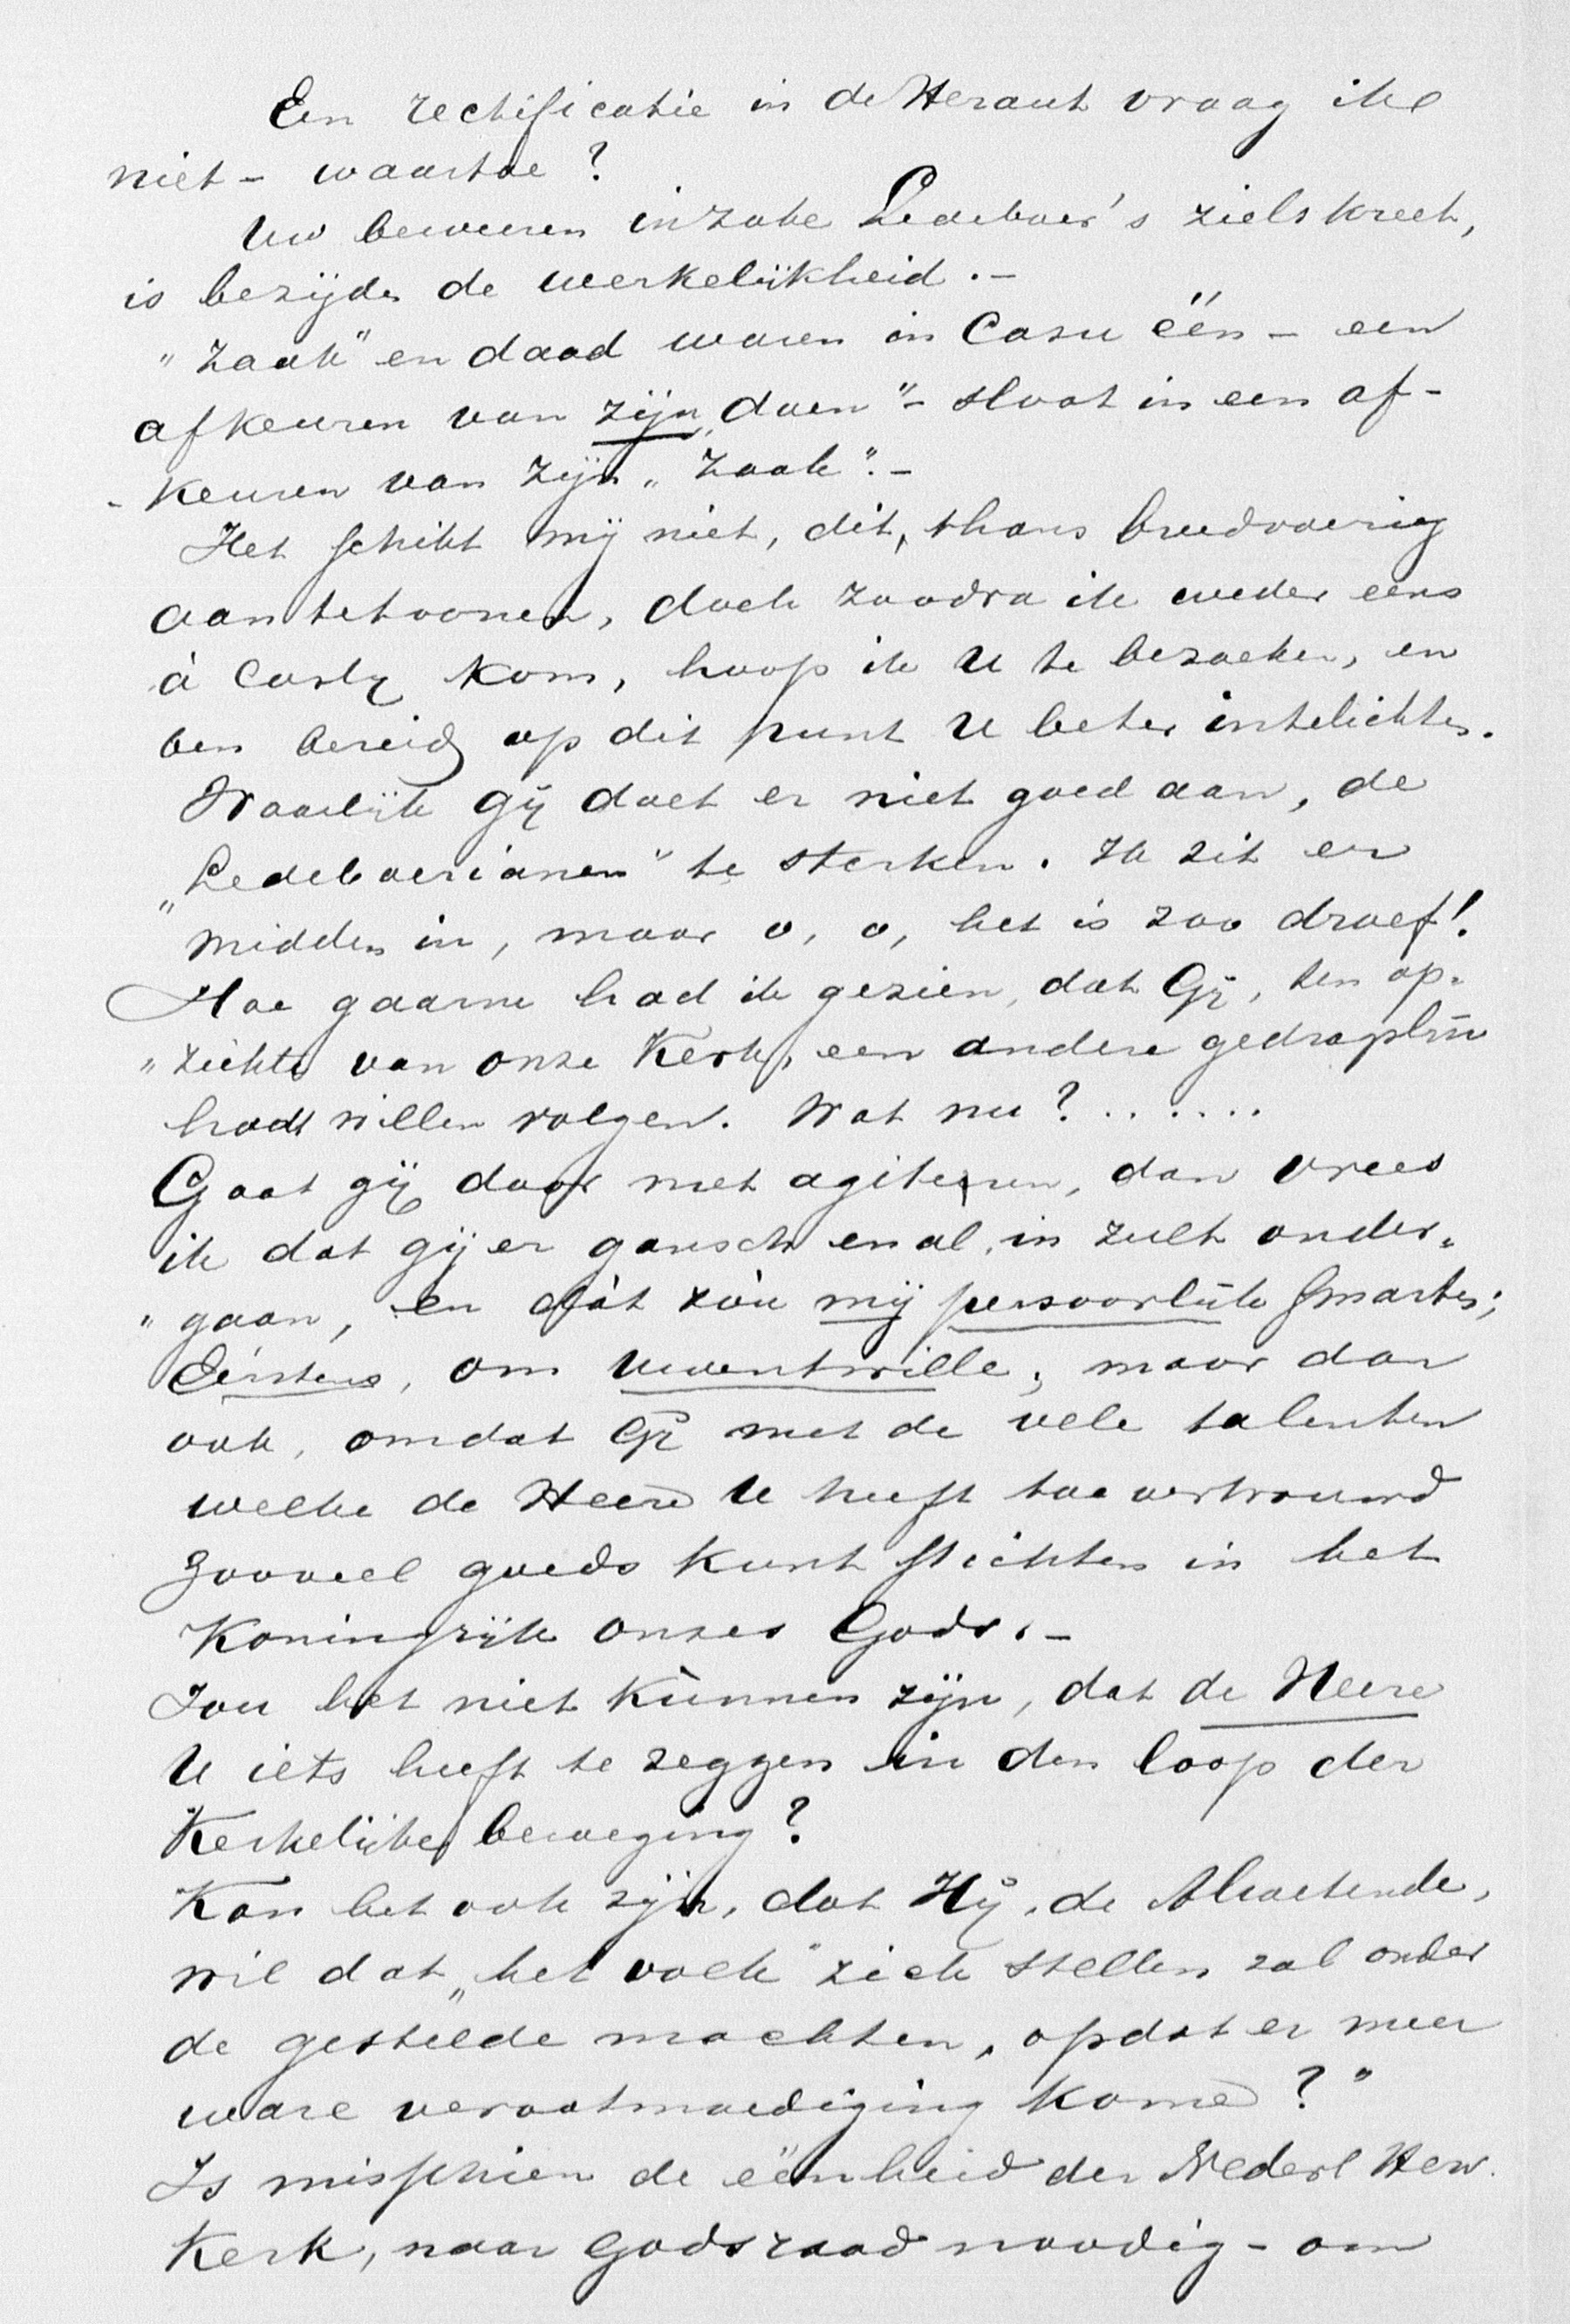 Een rectificatie in de Heraut vraag ik
niet – waartoe?
Uw beweren inzake Ledeboer's zielskreet,
is bezijden de werkelijkheid. –
„Zaak" en daad waren in Casu één – een
afkeuren van zijn „doen" – sloot in een af-
-keuren van zijn „Zaak". –
Het schikt mij niet, dit, thans breedvoerig
aantetoonen, doch zoodra ik weder eens
à Costy kom, hoop ik U te bezoeken, en
ben bereid op dit punt U beter intelichten.
Waarlijk gij doet er niet goed aan, de
„Ledeboerianen" te sterken. Ik zit er
midden in, maar o, o, het is zoo droef!
Hoe gaarne had ik gezien, dat Gij, ten op-
„zichte van onze Kerk, een andere gedragslijn
hadt willen volgen. Wat nu? . . . . . .
Gaat gij door met agiteeren, dan vrees
ik dat gij er gansch en al, in zult onder„
„gaan, en dàt zòu mij persoonlijk smarten;
Eérstens, om Uwentwille, maar dan
ook, omdat Gij met de vele talenten
welke de Heere U heeft toevertrouwd
zooveel goeds kunt stichten in het
Koningrijk onzes Gods. –
Zou het niet kùnnen zijn, dat de Heere
U iets heeft te zeggen in den loop der
Kerkelijke beweging?
Kan het ook zijn, dat Hij, de Alwetende,
wil dat „het volk" zich stellen zal onder
de gestelde machten, opdat er meer
ware verootmoediging kome?"
Is misschien de éénheid der Nederl Herv.
Kerk, naar Gods raad noodig – om